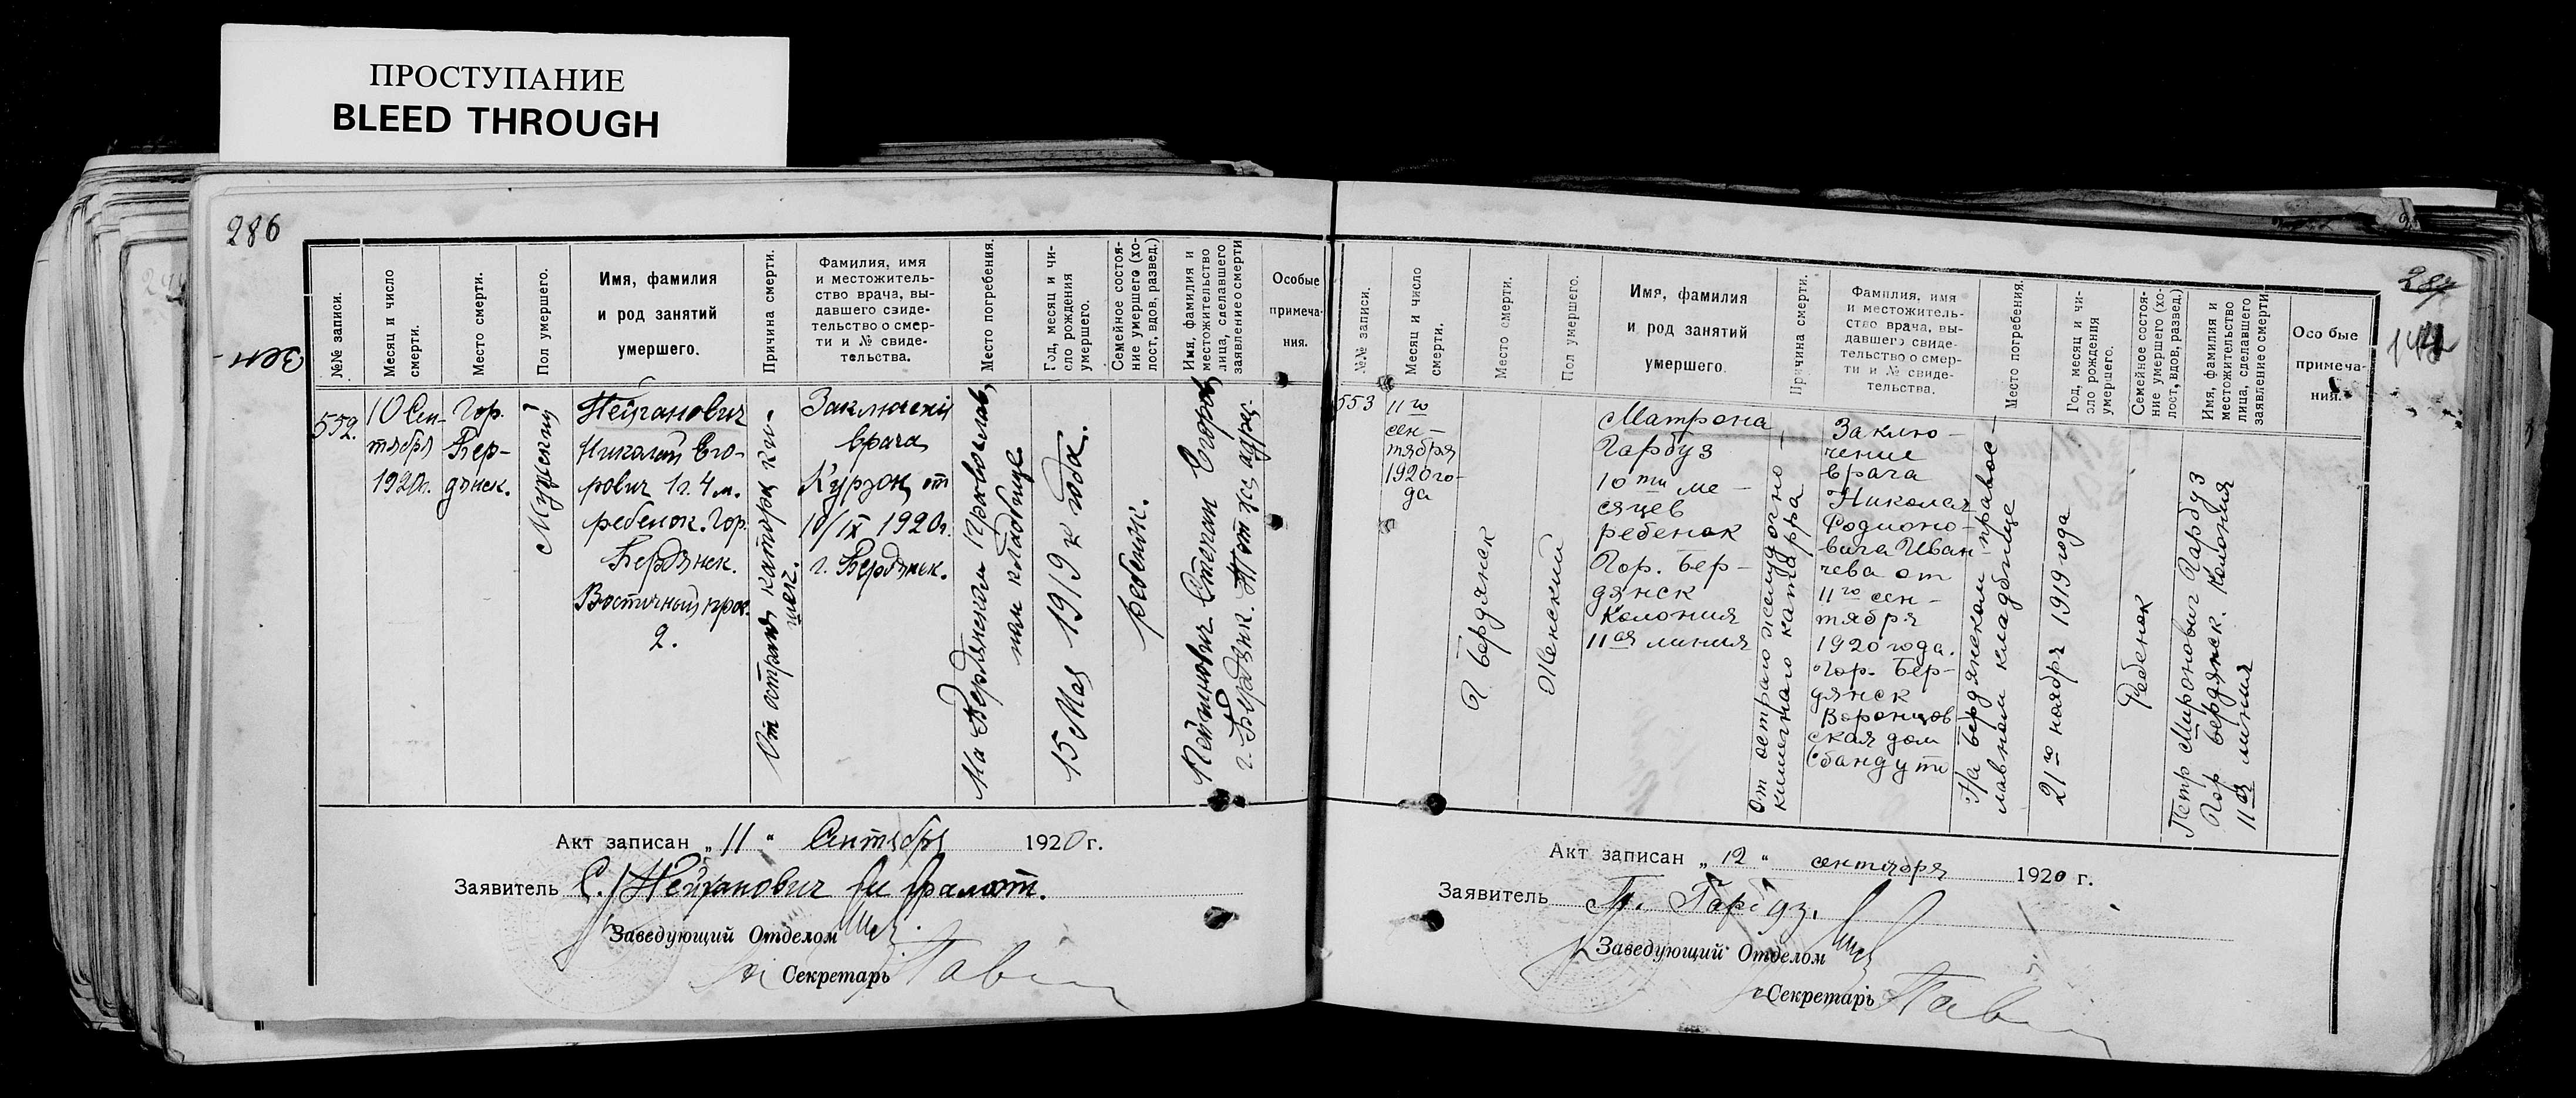 ПРОСТУПАНИЕ
BLEED THROUGH
286
№№ записи.
Месяц и число
смерти.
Место смерти.
Пол умершего.
Имя, фамилия
и род занятий
умершего.
Причина смерти.
Фамилия, имя
и местожитель-
ство врача, вы-
давшего свиде-
тельство о смер-
ти и № свиде-
тельства.
Место погребения.
Год, месяц и чи-
сло рождения
умершего.
Семейное состоя-
ние умершего (хо-
лост, вдов, развед.)
Имя, фамилия и
местожительство
лица, сделавшего
заявление о смерти
Особые
примеча-
ния.
552.
10 Сен-
тября
1920г.
Гор.
Бер-
дянск.
Мужской
Нейганович
Николай Его-
рович 1 г. 4 м.
ребенок. Гор.
Бердянск.
Восточный прос.
2.
От острого катора ки-
шек.
Заключений
врача
Курзон от
10/IX 1920г.
г. Бердянск.
На Бердянском православ
ном кладбище
15 Мая 1919 года.
ребенок.
Степан Егоров
г. Бердянк. Тот же адрес.
Акт записан „ 11 “ Сентября 1920 г.
Заявитель С. Нейганович
Заведующий Отделом
Секретарь
287
№№ записи.
Месяц и число
смерти.
Место смерти.
Пол умершего.
Имя, фамилия
и род занятий
умершего.
Причина смерти.
Фамилия, имя
и местожитель-
ство врача, вы-
давшего свиде-
тельство о смер-
ти и № свиде-
тельства.
Место погребения.
Год, месяц и чи-
сло рождения
умершего.
Семейное состоя-
ние умершего (хо-
лост, вдов, развед.)
Имя, фамилия и
местожительство
лица, сделавшего
заявление о смерти
Особые
примеча-
ния.
553
11го
сен-
тября
1920 го-
да
г. Бердянск
Женский
Матрона
Гарбуз
10ти ме-
сяцев
ребенок
Гор. Бер-
дянск
Колония
11ая линия
От острого желудочно-
кишечного катарра
Заклю-
чение
врача
Николая
Родионо-
вича Иван
чева от
11го сен-
тября
1920 года.
Гор. Бер-
дянск
Воронцов
ская дом
На бердянском правос-
лавном кладбище
21го ноября 1919 года
Ребенок
Петр Миронович Гарбуз
Гор бердянск. Колония
11ая линия
Акт записан „ 12 “ сентября 1920 г.
Заявитель П. Гарбуз.
Заведующий Отделом
Секретарь